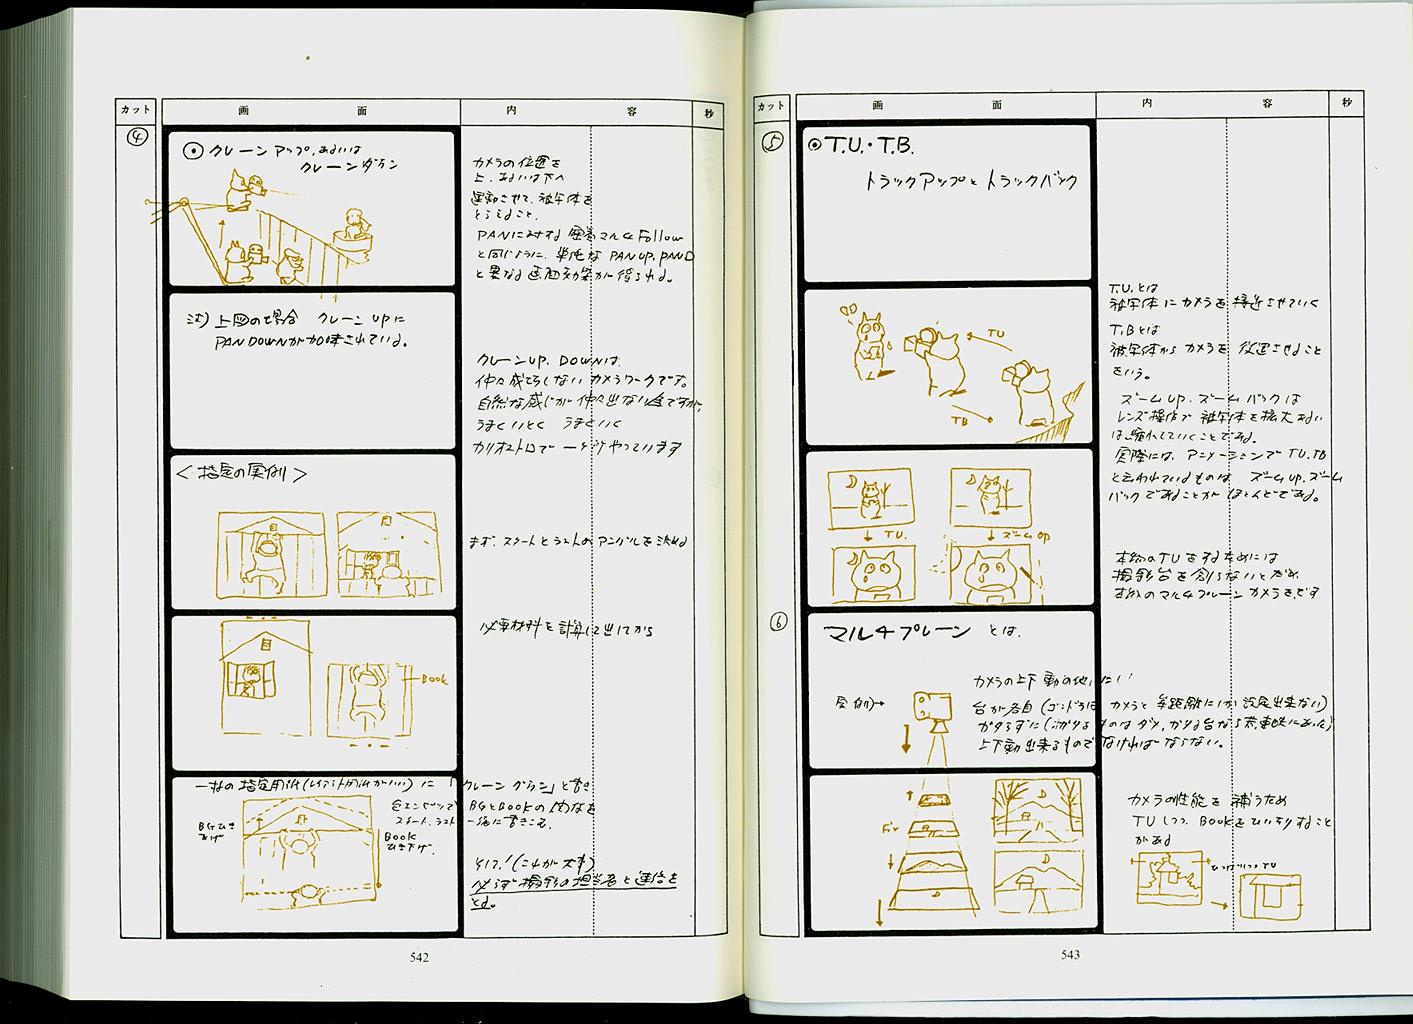 カット 画 面 内 容 秒
④
⊙ クレーンアップ、あるいは
クレーンダウン
カメラの位置を
上、あるいは下へ
運動させて、被写体を
とらえること、
PANに対する 密着マルチ Follow
と同じように、単純な PAN UP, PAN D
と異なる画面効果が得られる。
注) 上図の場合 クレーン UP に
PAN DOWN が加味されている。
クレーン UP, DOWN は、
仲々成功しない カメラワークです。
自然な感じが仲々出ない
うまくいくと うまくいく
カリオストロで やっています
<指定の実例>
まず、スタートとラストの アングルを決める
必要材料を計算して出してから
BOOK
一枚の指定用紙(レイアウト用紙がいい)に「クレーン ダウン」と書き
色エンピツで
スタート、ラスト
BGとBOOKの 内容を
一緒に書きこむ
BG ひき
あげ
BOOK
ひき下げ
そして!(これが大事)
必ず撮影の担当者と連絡を
とる。
542
カット 画 面 内 容 秒
⑤
⊙ T.U.・T.B.
トラックアップとトラックバック
T.U.とは
被写体にカメラを接近させていく
T.Bとは
被写体からカメラを 後退させること
をいう。
TU
TB
ズームUP、ズームバックは
レンズ操作で被写体を拡大あるい
は縮小していくことである。
実際には、アニメーションでTU、TB
と云われているものは ズームUP、ズーム
バックであることがほとんどである。
TU.
ズームUP
本格のTUをするためには
撮影台を創らないとだめ
⑥
マルチプレーン とは、
カメラの上下動の他に
実例)→
台が各自(ゴンドラは カメラと等距離にしか設定出来ない)
上下動出来るもので なければ ならない。
Fix
カメラの性能を補うため
TUしつつ、BOOKをひっぱること
がある
ひっぱりつつTU
543